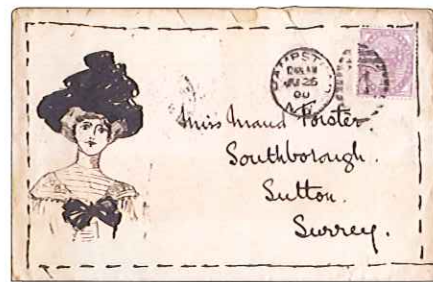 JU 26
00
Miss Maud Forster.
Southborough.
Sutton.
Surrey.